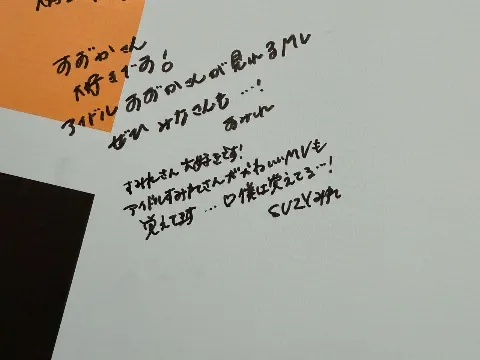 すずかさん
大好きです!
アイドルすずかさんが見れるMV
ぜひ みなさんも …!
すみれ
すみれさん 大好きです!
アイドルすみれさんがかわいいMVも
覚えてます … ♡ 僕は覚えてる…!